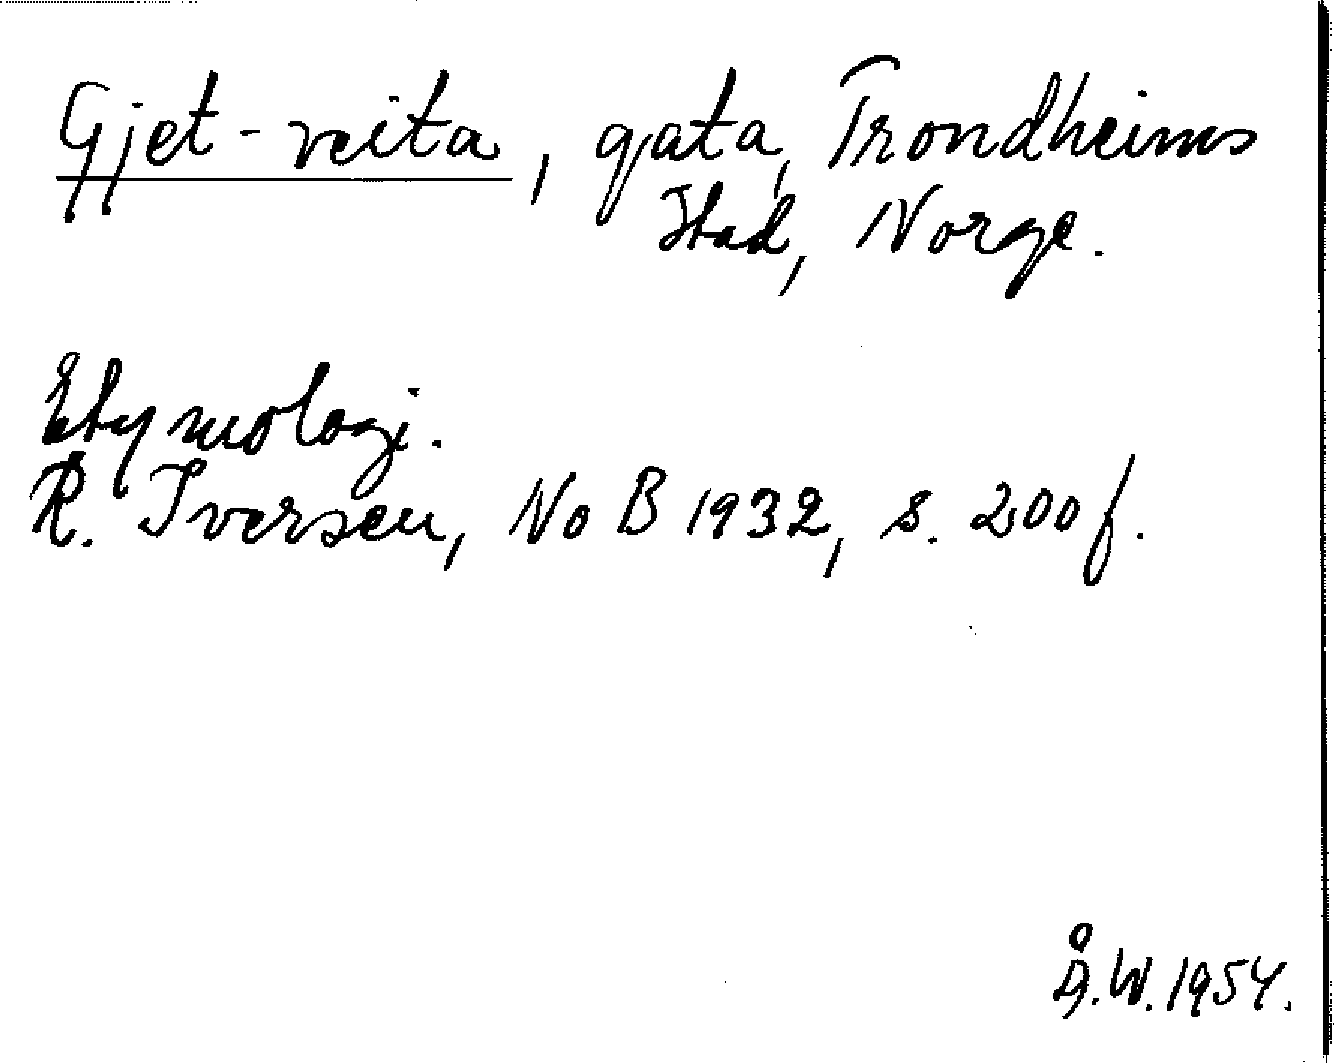 Gjet-veita, gata, Trondheims
stad, Norge.
Etymologi.
R. Iversen, NoB 1932, s. 200 f.
Å.W. 1954.